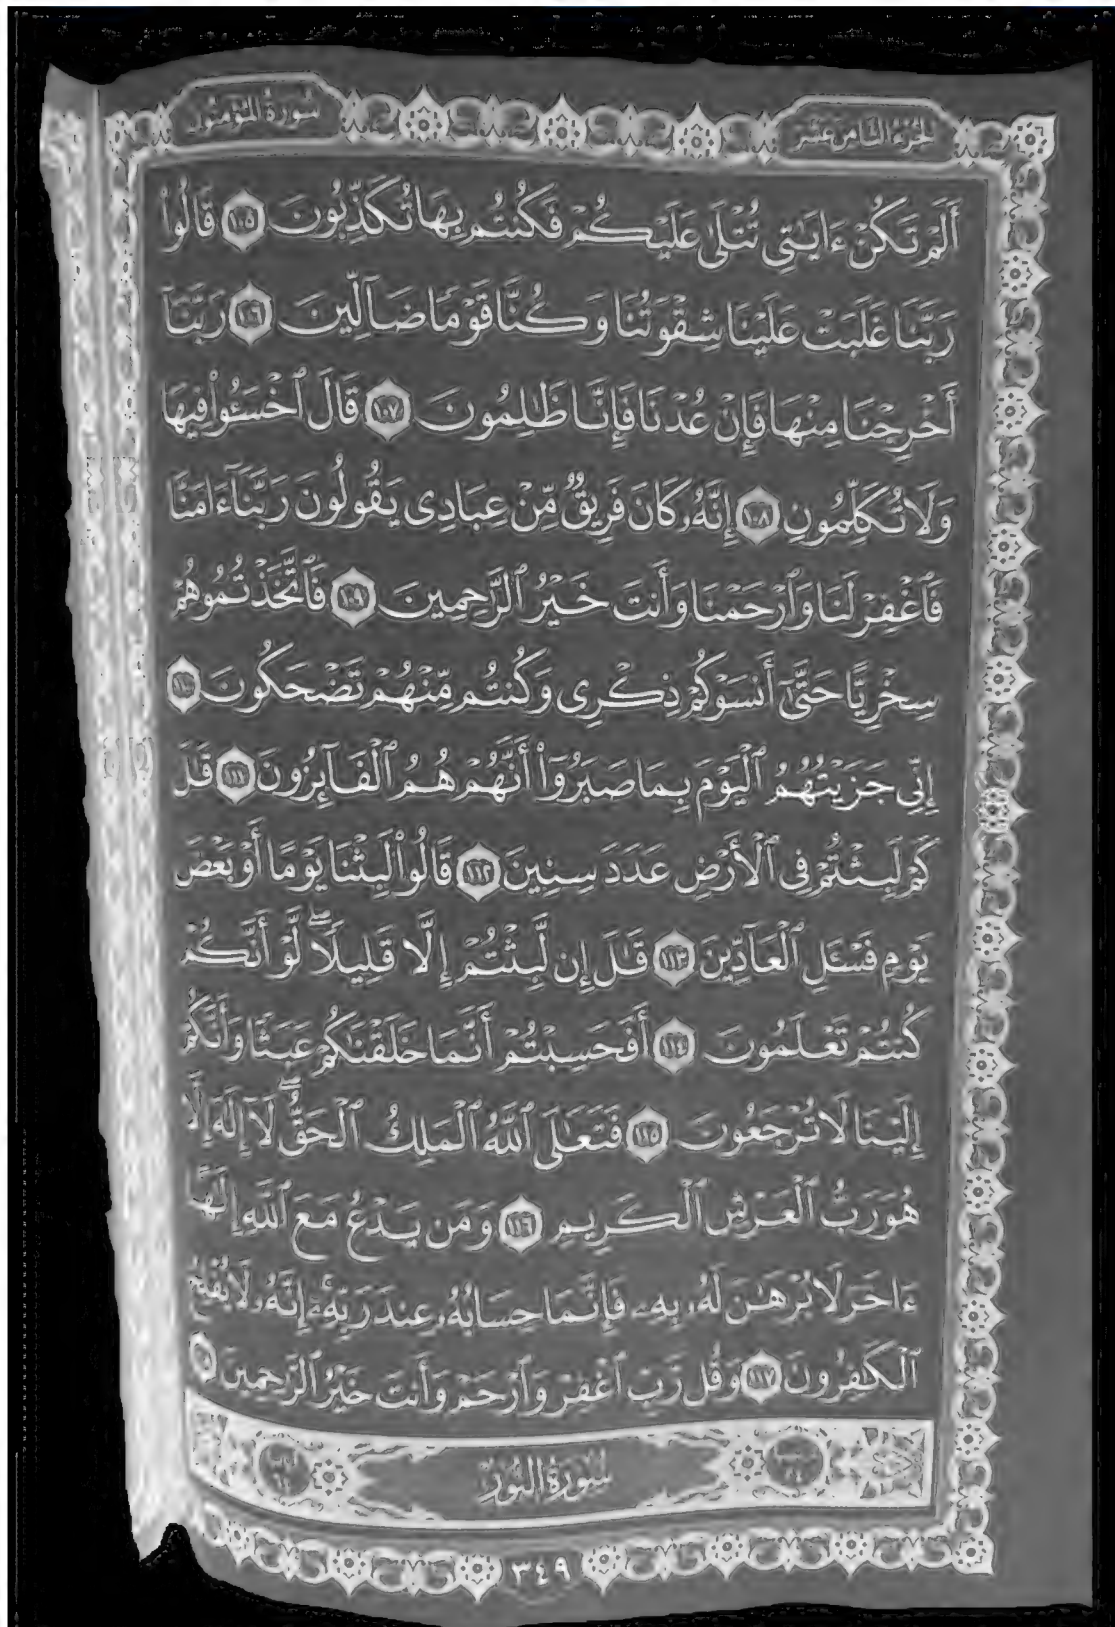 سُورَةُ المُؤْمِنُون
الجُزْءُ الثَّامِن عَشَر
أَلَمْ تَكُنْ ءَايَٰتِى تُتْلَىٰ عَلَيْكُمْ فَكُنتُم بِهَا تُكَذِّبُونَ ١٠٥ قَالُوا۟
رَبَّنَا غَلَبَتْ عَلَيْنَا شِقْوَتُنَا وَكُنَّا قَوْمًا ضَآلِّينَ ١٠٦ رَبَّنَآ
أَخْرِجْنَا مِنْهَا فَإِنْ عُدْنَا فَإِنَّا ظَٰلِمُونَ ١٠٧ قَالَ ٱخْسَـُٔوا۟ فِيهَا
وَلَا تُكَلِّمُونِ ١٠٨ إِنَّهُۥ كَانَ فَرِيقٌ مِّنْ عِبَادِى يَقُولُونَ رَبَّنَآ ءَامَنَّا
فَٱغْفِرْ لَنَا وَٱرْحَمْنَا وَأَنتَ خَيْرُ ٱلرَّٰحِمِينَ ١٠٩ فَٱتَّخَذْتُمُوهُمْ
سِخْرِيًّا حَتَّىٰٓ أَنسَوْكُمْ ذِكْرِى وَكُنتُم مِّنْهُمْ تَضْحَكُونَ ١١٠
إِنِّى جَزَيْتُهُمُ ٱلْيَوْمَ بِمَا صَبَرُوٓا۟ أَنَّهُمْ هُمُ ٱلْفَآئِزُونَ ١١١ قَٰلَ
كَمْ لَبِثْتُمْ فِى ٱلْأَرْضِ عَدَدَ سِنِينَ ١١٢ قَالُوا۟ لَبِثْنَا يَوْمًا أَوْ بَعْضَ
يَوْمٍ فَسْـَٔلِ ٱلْعَآدِّينَ ١١٣ قَٰلَ إِن لَّبِثْتُمْ إِلَّا قَلِيلًا ۖ لَّوْ أَنَّكُمْ
كُنتُمْ تَعْلَمُونَ ١١٤ أَفَحَسِبْتُمْ أَنَّمَا خَلَقْنَٰكُمْ عَبَثًا وَأَنَّكُمْ
إِلَيْنَا لَا تُرْجَعُونَ ١١٥ فَتَعَٰلَى ٱللَّهُ ٱلْمَلِكُ ٱلْحَقُّ ۖ لَآ إِلَٰهَ إِلَّا
هُوَ رَبُّ ٱلْعَرْشِ ٱلْكَرِيمِ ١١٦ وَمَن يَدْعُ مَعَ ٱللَّهِ إِلَٰهًا
ءَاخَرَ لَا بُرْهَٰنَ لَهُۥ بِهِۦ فَإِنَّمَا حِسَابُهُۥ عِندَ رَبِّهِۦٓ ۚ إِنَّهُۥ لَا يُفْلِحُ
ٱلْكَٰفِرُونَ ١١٧ وَقُل رَّبِّ ٱغْفِرْ وَٱرْحَمْ وَأَنتَ خَيْرُ ٱلرَّٰحِمِينَ
سُورَةُ النُّورِ
٣٤٩